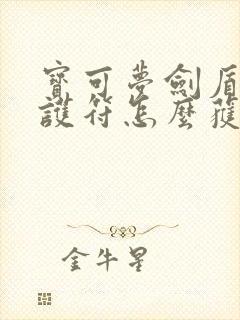 寶可夢劍盾
護符怎麼獲
金牛星